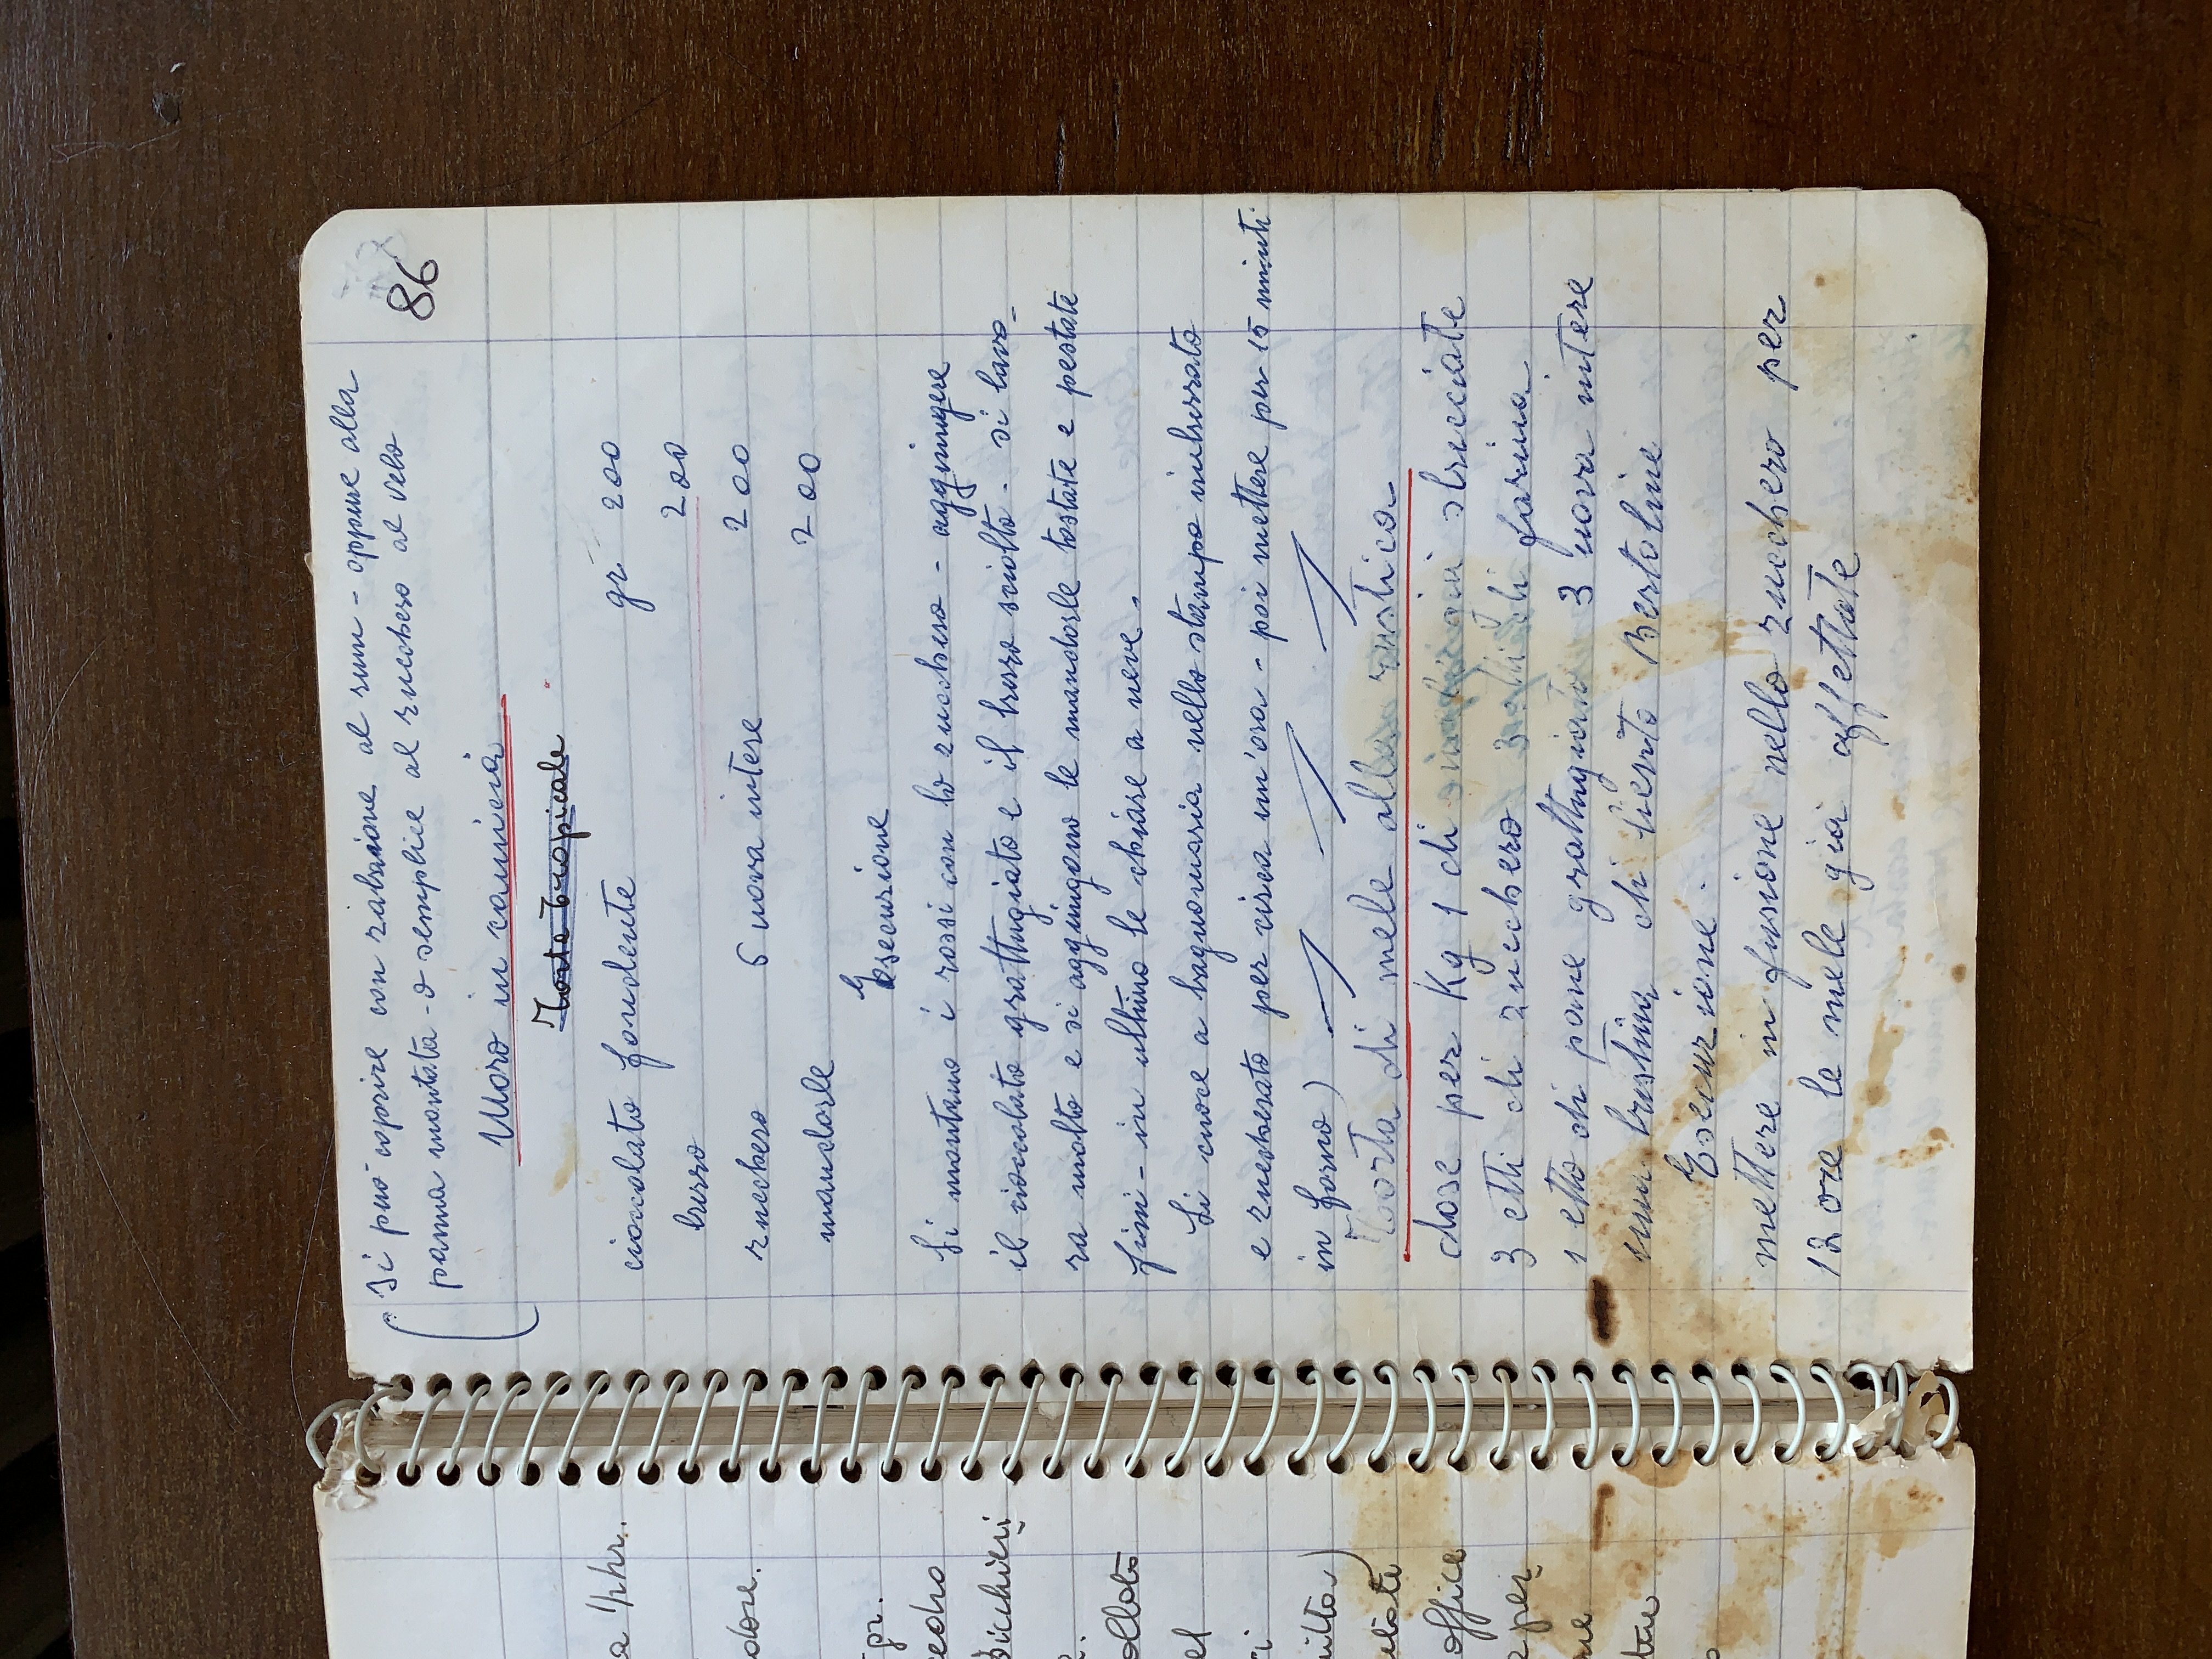 a 1/2 hr.
dore.
gr.
cedro
bicchieri
ollato
el
office
per
Si può coprire con zabaione al rum - oppure alla
panna montata - o semplice al zucchero al velo
86
Moro in camicia
Torta Tropicale
cioccolato fondente gr 200
burro 200
zucchero 6 uova intere 200
mandorle 200
Esecuzione
Si montano i rossi con lo zucchero - aggiungere
il cioccolato grattugiato e il burro sciolto - si lavo-
ra molto e si aggiungono le mandorle tostate e pestate
fini - in ultimo le chiare a neve.
Si cuoce a bagnomaria nello stampo imburrato
e zuccherato per circa un'ora - poi mettere per 15 minuti
in forno)
Torta di mele alla rustica
dose per Kg 1 di mele già sbucciate
3 etti di zucchero 3 etti di farina
1 etto di pane grattugiato 3 uova intere
una bustina di lievito Bertoline
Esecuzione.
mettere in fusione nello zucchero per
12 ore le mele già affettate